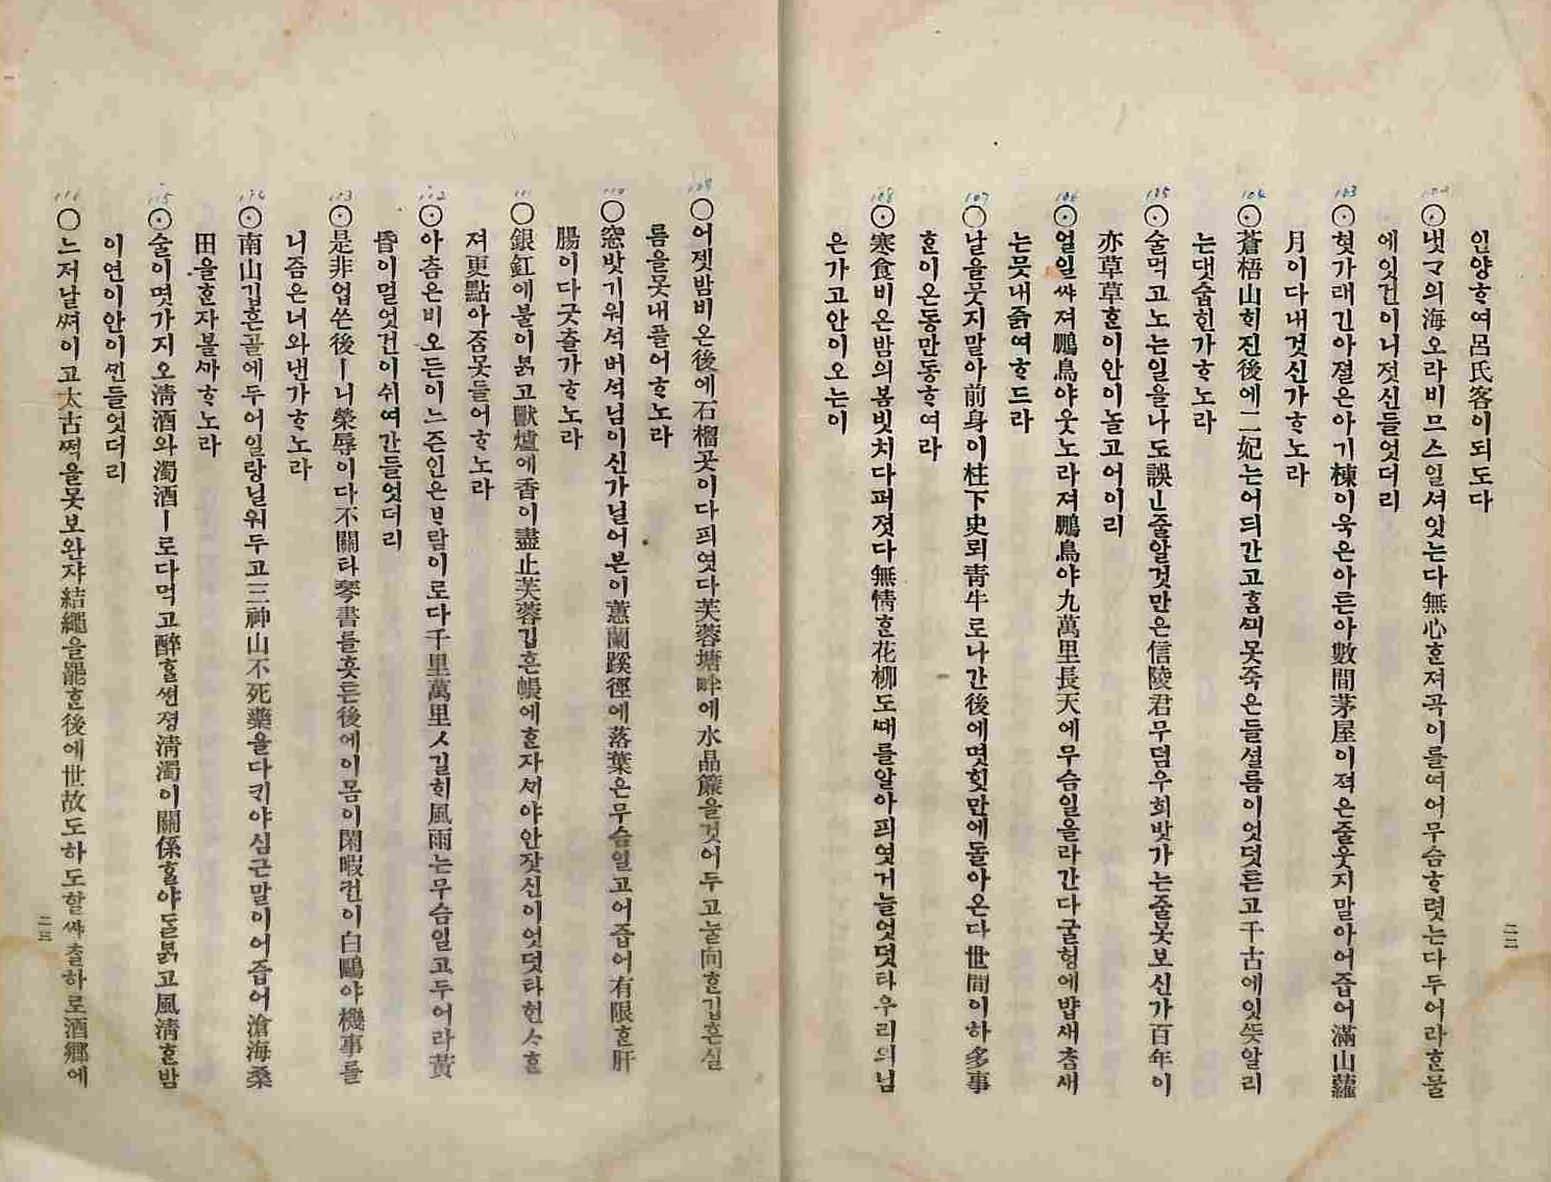 인양ᄒᆞ여呂氏客이되도다
102
⊙냇ᄀᆞ의海오라비므스일셔잇는다無心ᄒᆞᆫ져곡이를여어무슴ᄒᆞ렷는다두어라ᄒᆞᆫ물
에잇건이니젓신들엇더리
103
⊙혓가래긴아졀은아기棟이욱은아른아數間茅屋이젹은줄웃지말아어즙어滿山蘿
月이다내것신가ᄒᆞ노라
104
⊙蒼梧山ᄒᆡ진後에二妃는어듸간고ᄒᆞᆷᄭᅴ못죽은들셜름이엇덧튼고千古에잇ᄯᅳᆺ알리
는댓숩힌가ᄒᆞ노라
105
⊙술먹고노는일을나도誤ᅟᅵᆫ줄알것만은信陵君무덤우희밧가는줄못보신가百年이
亦草草ᄒᆞᆫ이안이놀고어이리
106
⊙얼일ᄊᆞ져鵬鳥야웃노라져鵬鳥야九萬里長天에무슴일올라간다굴헝에ᄇᆞᆸ새ᄎᆞᆷ새
는못내즑여ᄒᆞ드라
107
○날을뭇지말아前身이柱下史뢰靑牛로나간後에몃ᄒᆡᆺ만에돌아온다世間이하多事
ᄒᆞᆫ이온동만동ᄒᆞ여라
108
⊙寒食비온밤의봄빗치다퍼졋다無情ᄒᆞᆫ花柳도ᄯᅢ를알아픠엿거늘엇덧타우리의님
은가고안이오는이
二二
109
○어젯밤비온後에石榴곳이다픠엿다芙蓉塘畔에水晶簾을것어두고눌向ᄒᆞᆫ깁흔실
름을못내플어ᄒᆞ노라
110
○窓밧기워석버석님이신가닐어본이蕙蘭蹊徑에落葉은무슴일고어즙어有限ᄒᆞᆫ肝
腸이다긋츨가ᄒᆞ노라
111
○銀釭에불이ᄇᆞᆰ고獸爐에香이盡止芙蓉깁흔帳에ᄒᆞᆫ자ᄭᅢ야안잣신이엇덧타헌ᄉᆞᄒᆞᆫ
져更點아ᄌᆞᆷ못들어ᄒᆞ노라
112
⊙아ᄎᆞᆷ은비오든이느즌인은ᄇᆞ람이로다千里萬里ㅅ길ᄒᆡ風雨는무슴일고두어라黃
昏이멀엇건이쉬여간들엇더리
113
⊙是非업쓴後ㅣ니榮辱이다不關타琴書를흣튼後에이몸이閑暇컨이白鷗야機事를
니즘은너와낸가ᄒᆞ노라
114
⊙南山깁흔골에두어일랑닐워두고三神山不死藥을다키야심근말이어즙어滄海桑
田을ᄒᆞᆫ자볼ᄭᅡᄒᆞ노라
115
⊙술이몃가지오淸酒와濁酒ㅣ로다먹고醉ᄒᆞᆯᄲᅧᆫ졍淸濁이關係ᄒᆞᆯ야ᄃᆞᆯᄇᆞᆰ고風淸ᄒᆞᆫ밤
이연이안이ᄭᅵᆫ들엇더리
116
○느저날ᄶᅧ이고太古ᄶᅥᆨ을못보완쟈結繩을罷ᄒᆞᆫ後에世故도하도할ᄊᆞᄎᆞᆯ하로酒鄕에
二三